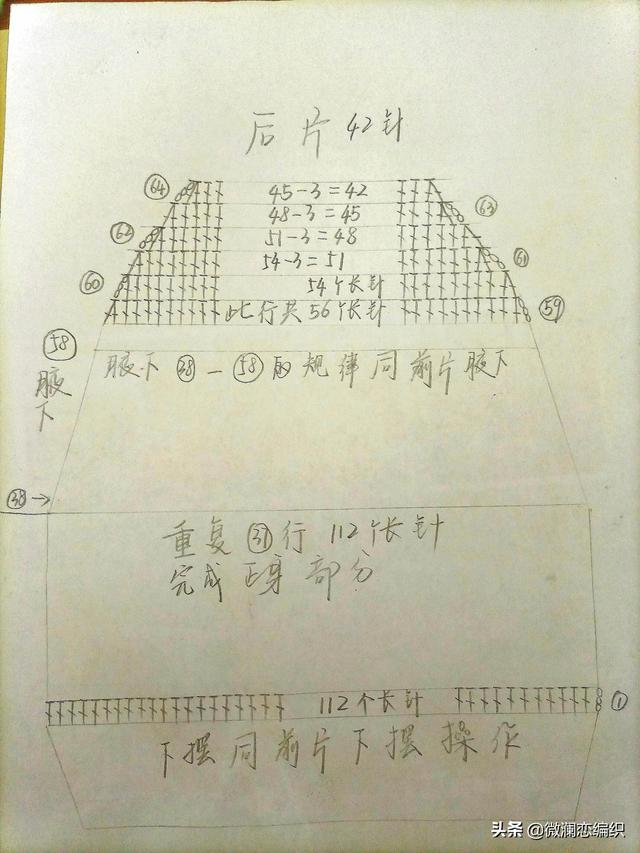 后片 42针
64 45-3=42
48-3=45 63
62 51-3=48
54-3=51 61
60 54个长针
此行共56个长针 59
58
腋下
腋下 38—58的规律同前片腋下
38→
重复 31行 112个长针
完成正身部分
112个长针 1
下摆同前片下摆操作
头条 @微澜恋编织